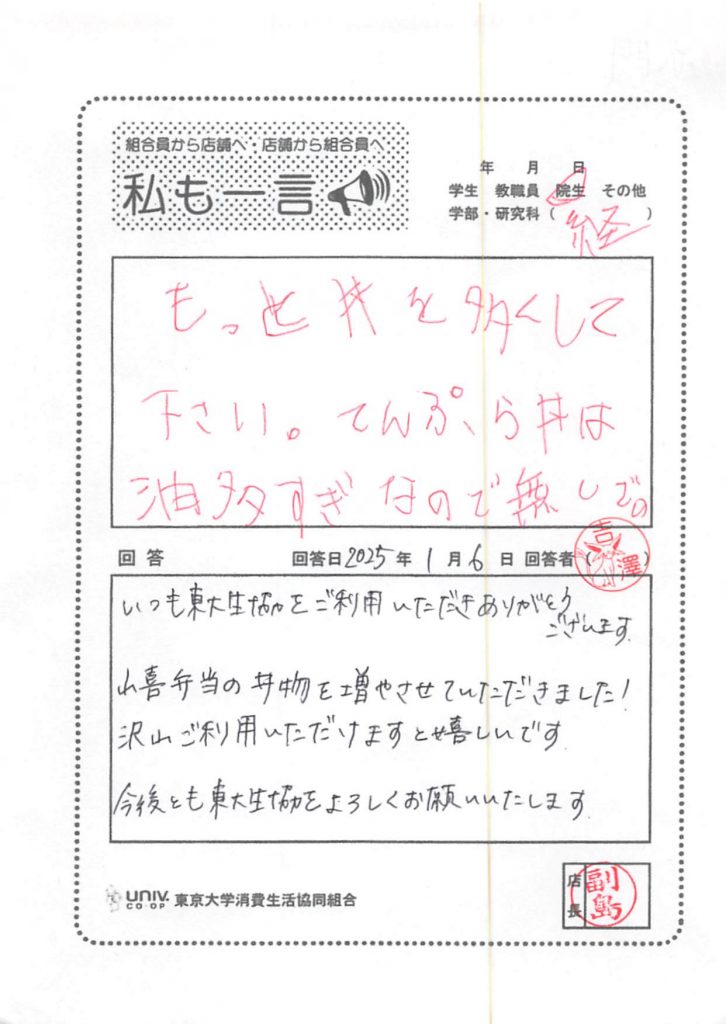 組合員から店舗へ・店舗から組合員へ
私も一言
年 月 日
学生 教職員 院生 その他
学部・研究科（経）
もっと丼を多くして
下さい。てんぷら丼は
油多すぎなので無しでの
回答 回答日2025年1月6日 回答者（吉澤）
いつも東大生協をご利用いただきありがとう
ございます
山喜弁当の丼物を増やさせていただきました!
沢山ご利用いただけますと嬉しいです
今後とも東大生協をよろしくお願いいたします
UNIV. CO-OP 東京大学消費生活協同組合
店長 副島